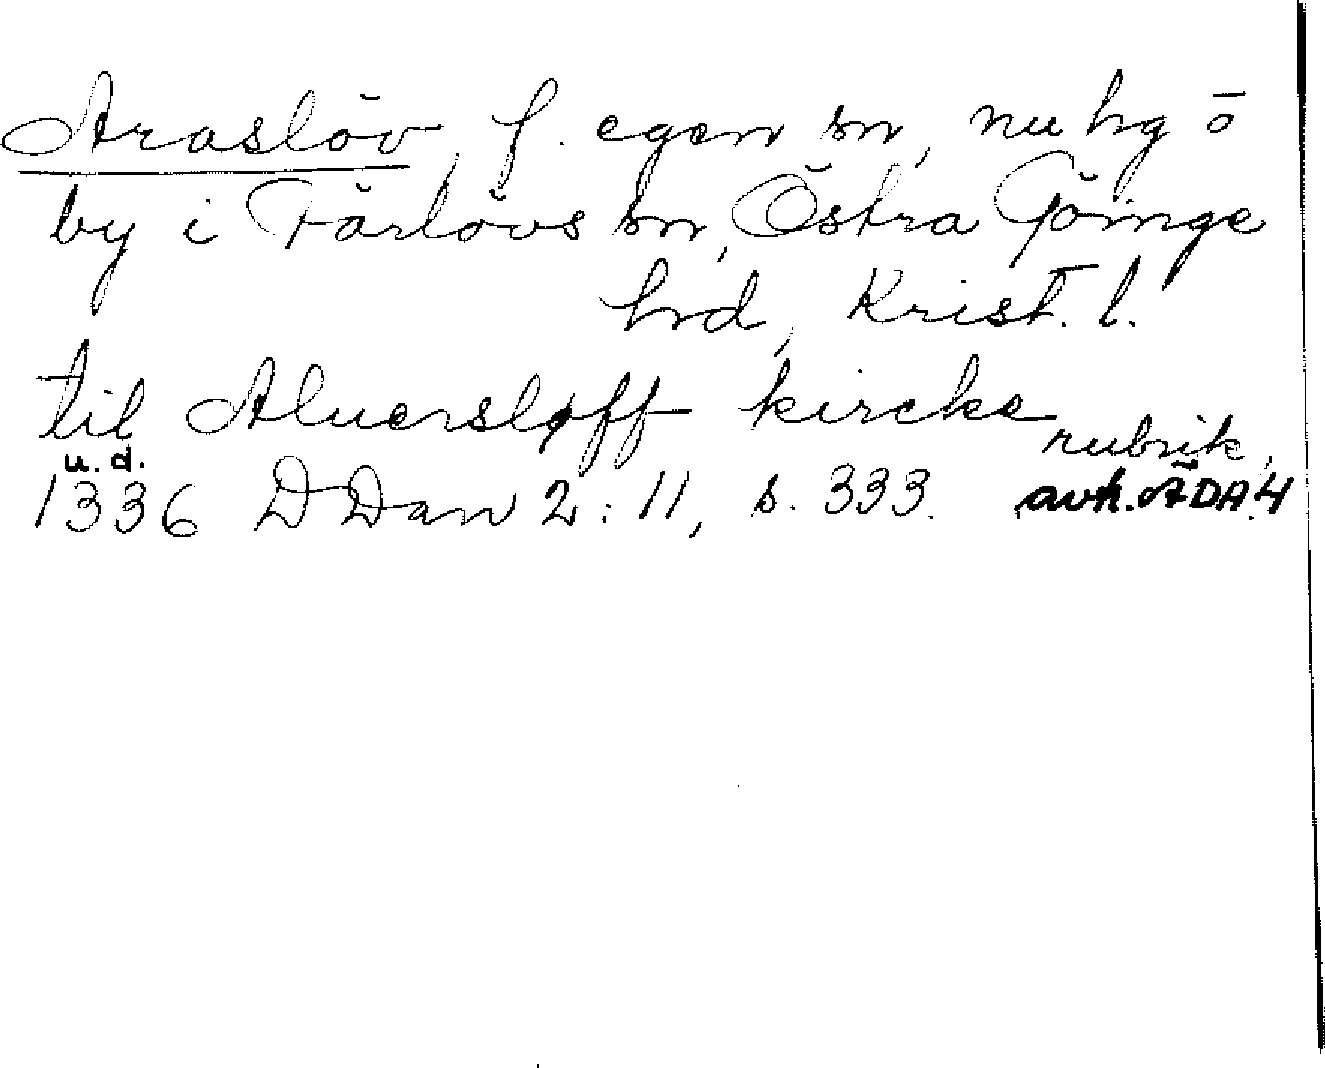 Araslöv, f. egen sn, nu hg o
by i Färlövs sn, Östra Göinge
hd, Krist. l.
til Aluersløff kircke
rubrik,
u. d.
1336 DDan 2: 11, s. 333. avh. ÄDA.4